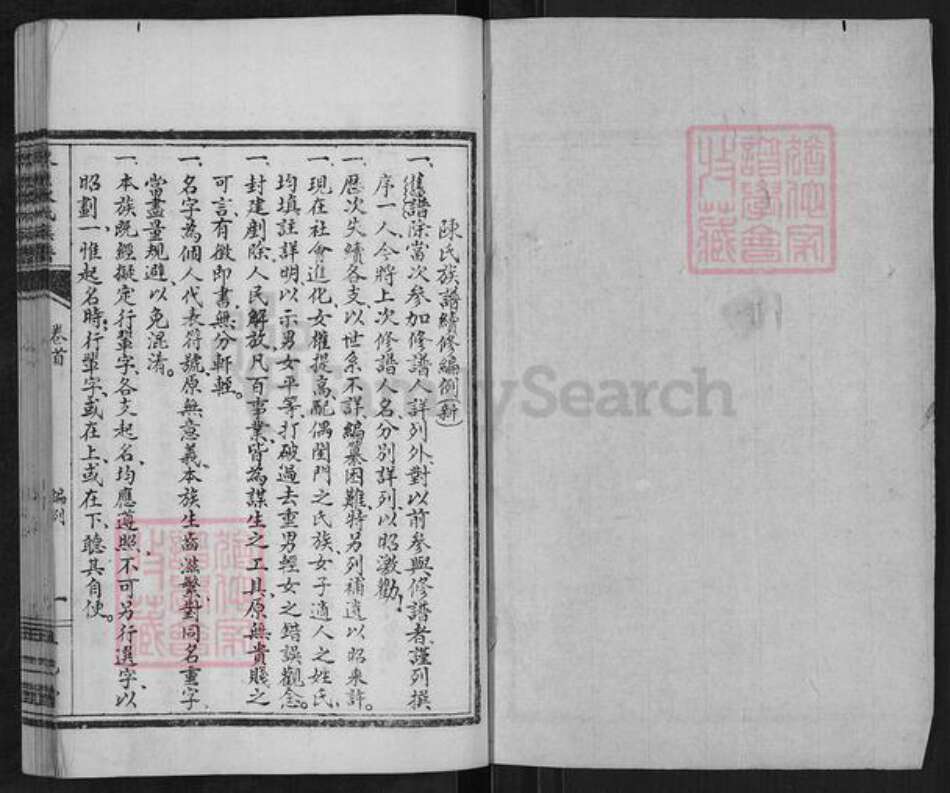 陳氏族譜續修編例(新)
一、舊譜除當次參加修譜人詳列外、對以前參與修譜者、謹列撰
序一人、今將上次修譜人名分別詳列、以昭激勸!
一、歷次失續各支、以世系不詳、編纂困難、特另列補遺、以昭來許。
一、現在社會進化、女權提高、配偶閨門之氏族、女子適人之姓氏、
均填註詳明、以示男女平等、打破過去重男輕女之錯誤觀念。
一、封建剷除、人民解放、凡百事業、皆為謀生之工具、原無貴賤之
可言、有徵即書、無分軒輊。
一、名字為個人代表符號、原無意義、本族生齒滋繁、對同名重字、
當盡量規避、以免混淆。
一、本族既經擬定行輩字、各支起名、均應遵照、不可另行選字、以
昭劃一、惟起名時、行輩字、或在上、或在下、聽其自便。
卷首
編列
一
FamilySearch